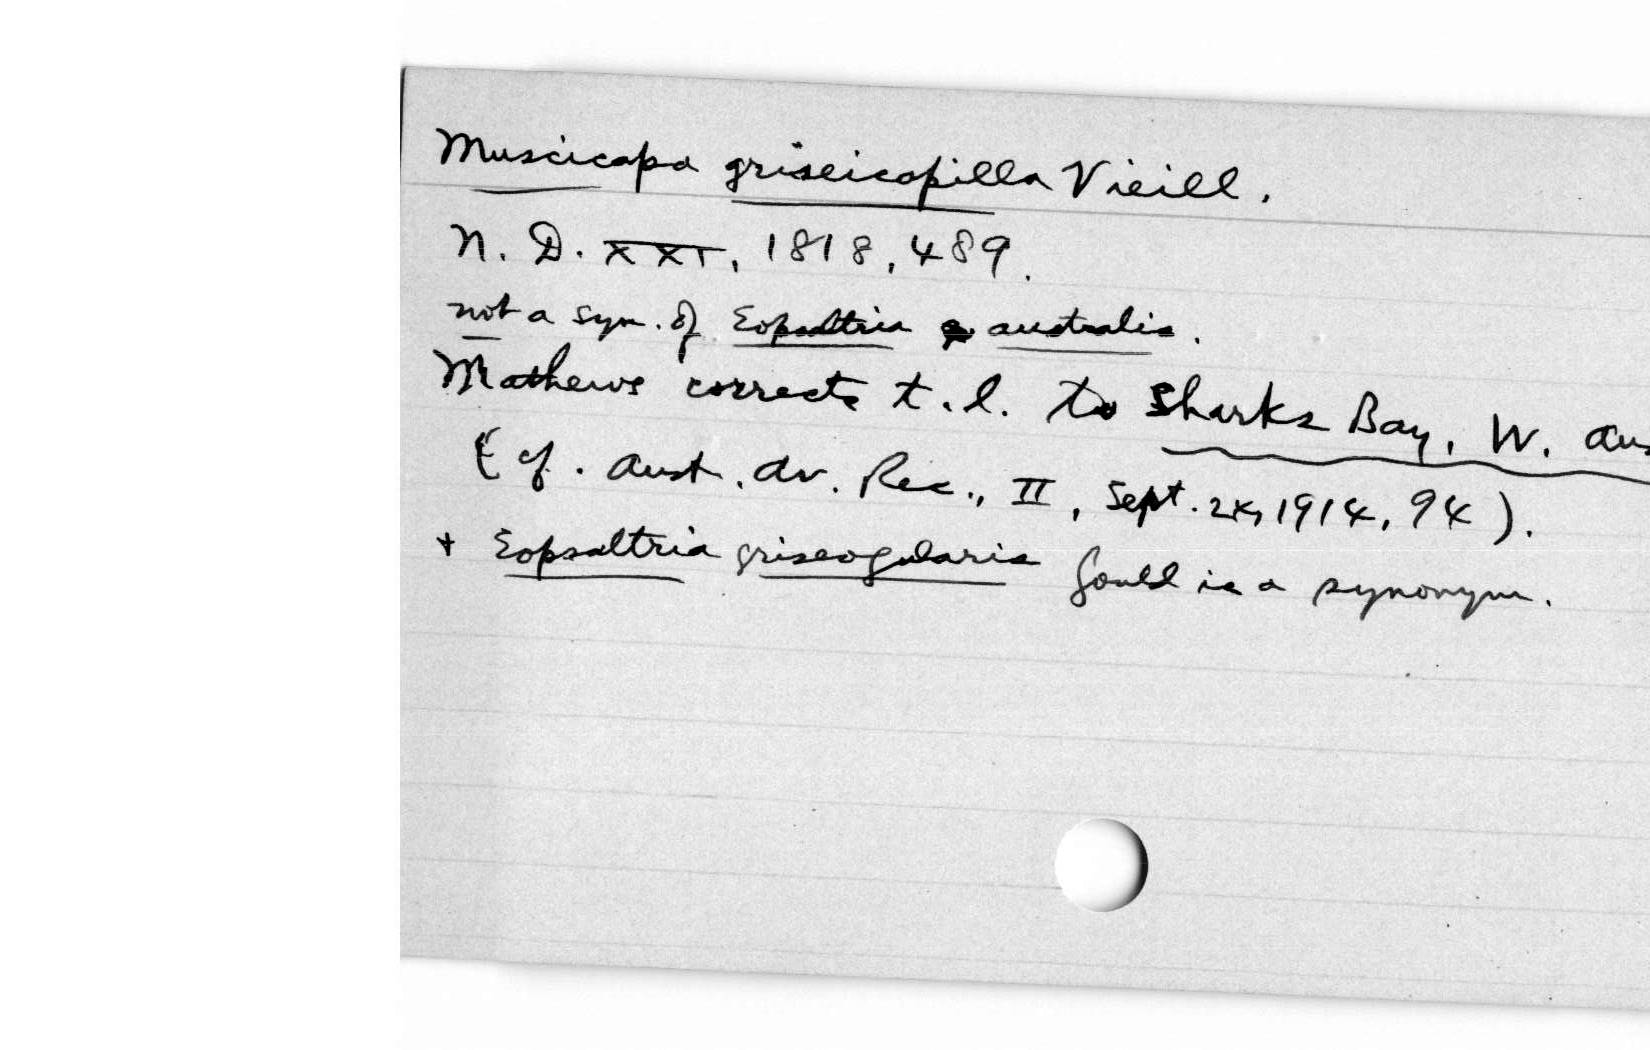 Muscicapa griseicapilla Vieill.
N. D. XXI, 1818, 489.
not a syn. of Eopsaltria australis.
Mathews corrects t.l. to Sharks Bay, W. Aus
(cf. Aust. Av. Rec., II, Sept. 24, 1914, 94).
+ Eopsaltria griseogularis Gould is a synonym.